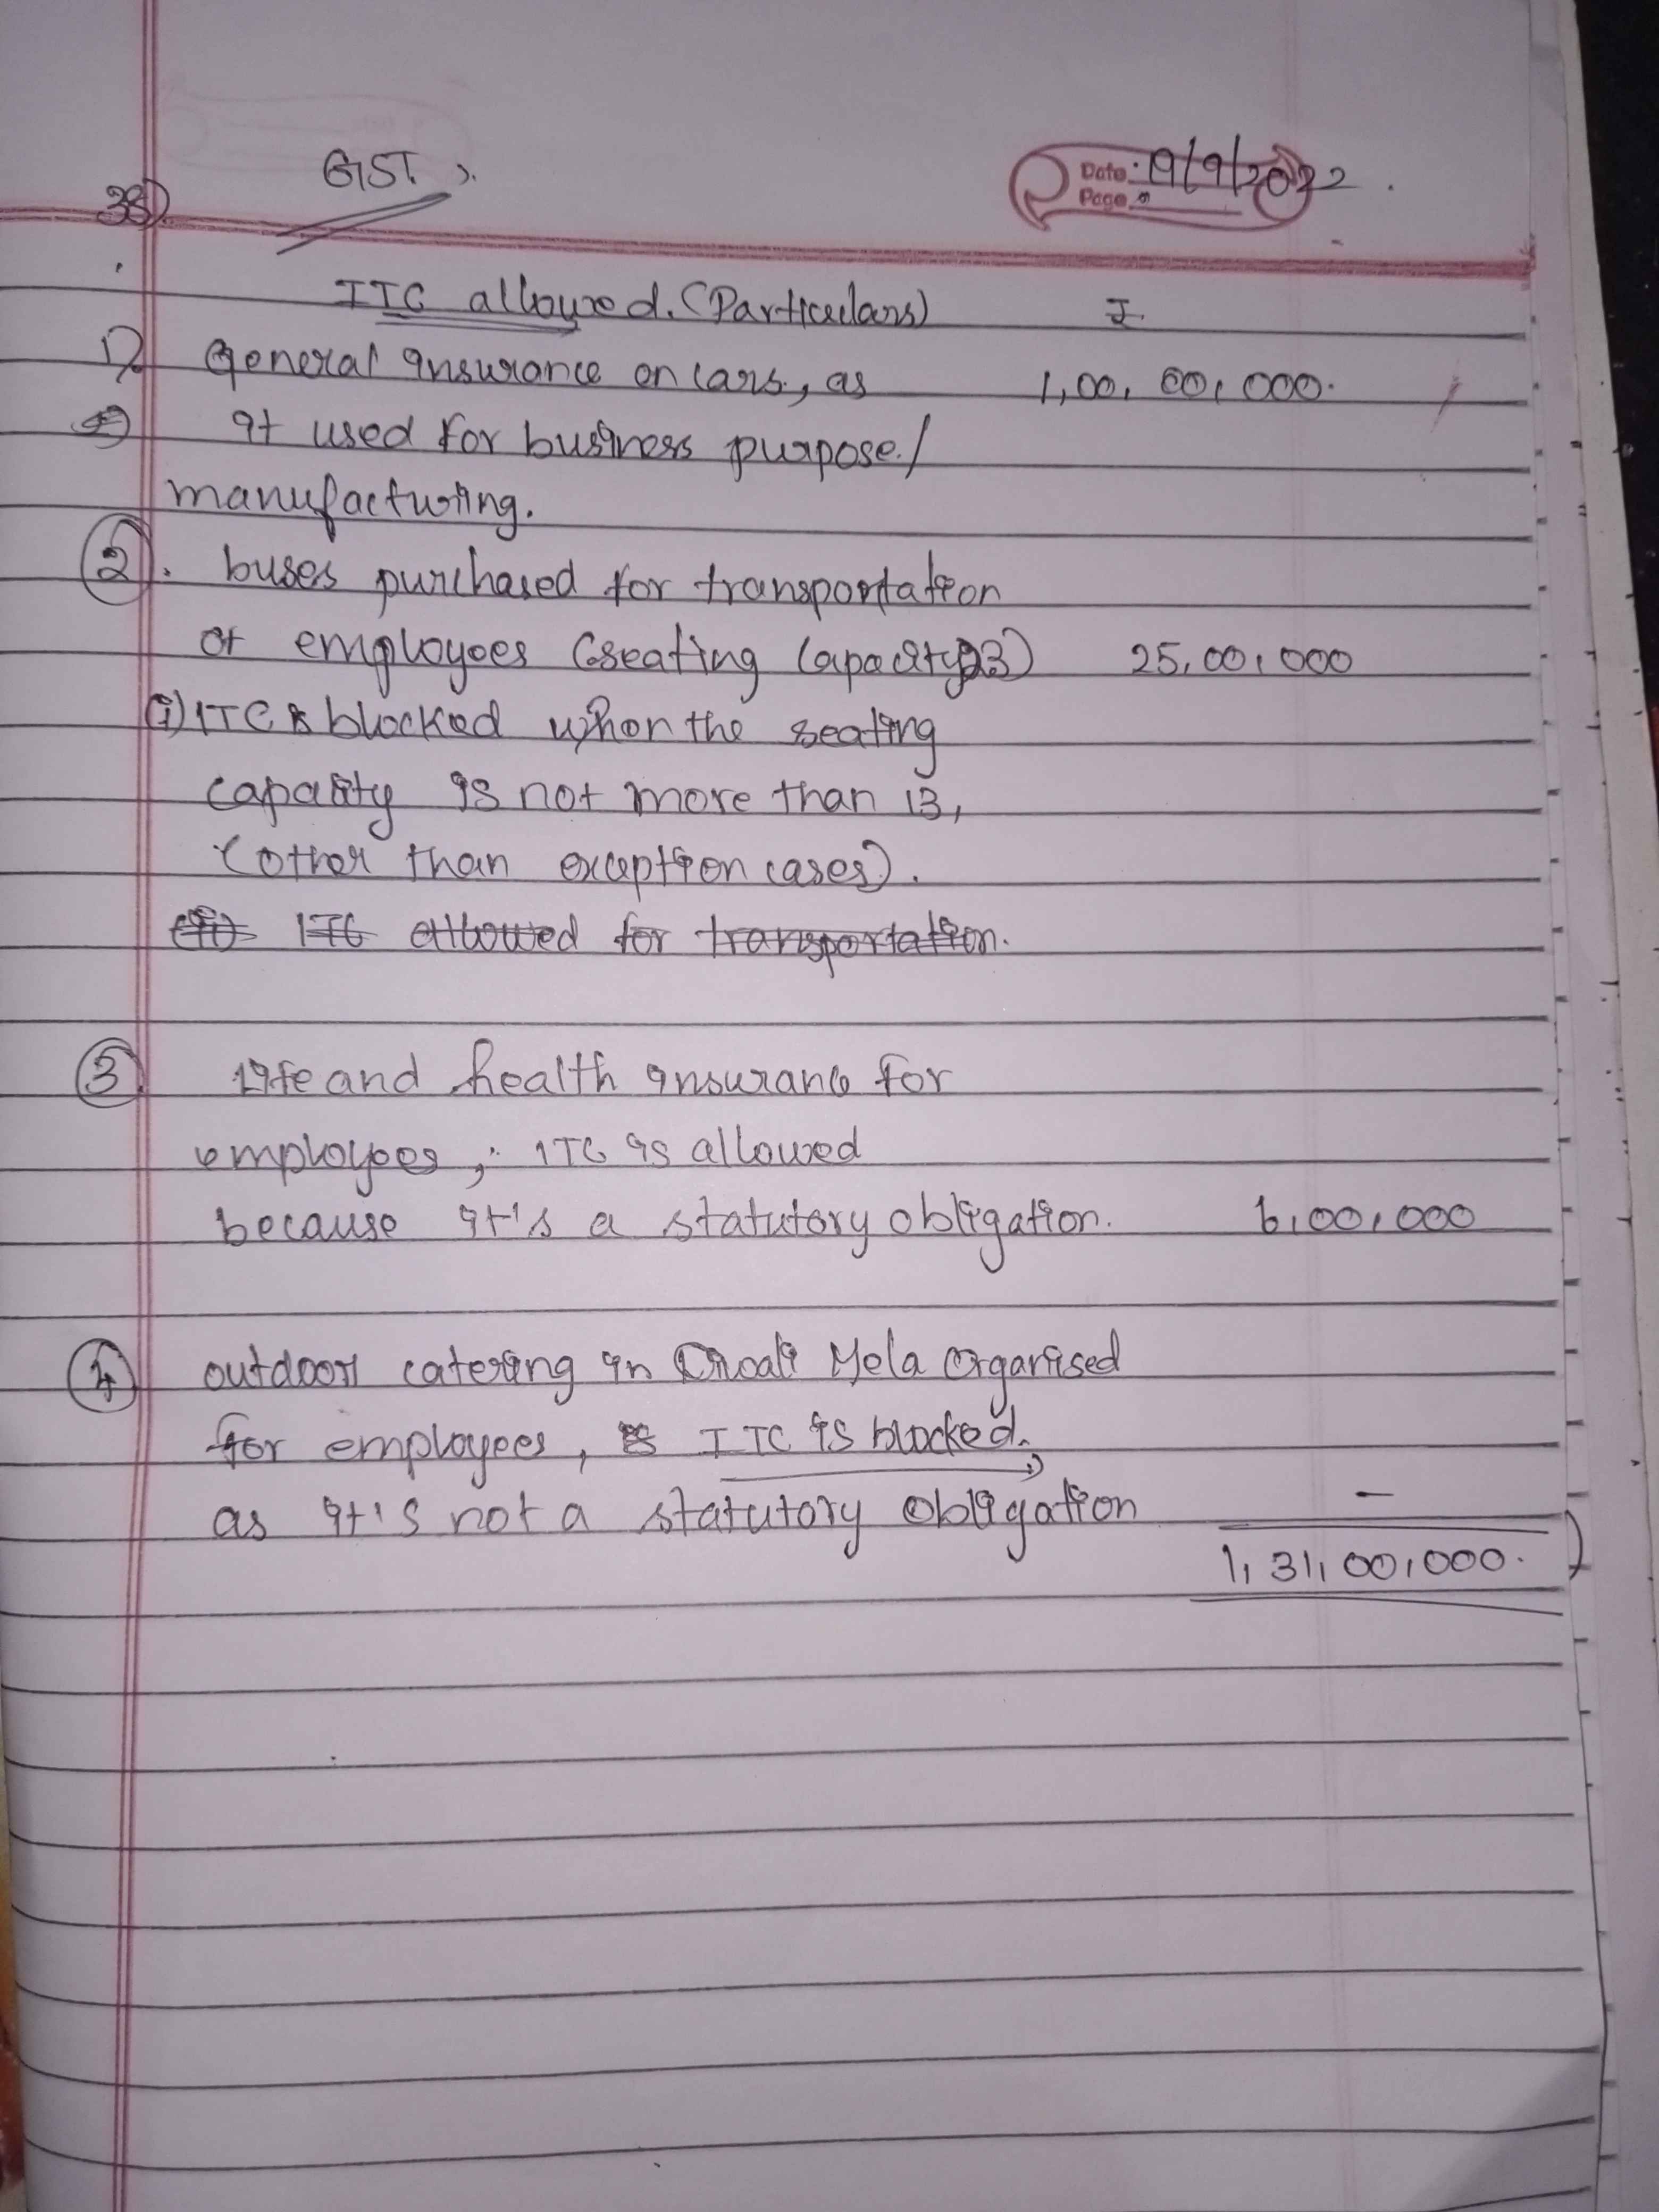 GST :.
Date: 19/9/2022.
Page
38)
ITC allowed. (Particulars) ₹.
1) General insurance on cars, as 1,00,00,000.
it used for business purpose/
manufacturing.
2. buses purchased for transportation
of employees (seating capacity 23) 25,00,000
(i) ITC is blocked when the seating
capacity is not more than 13,
(other than exception cases).
(ii) ITC allowed for transportation.
3 life and health insurance for
employees, ∴ ITC is allowed
because it's a statutory obligation. 6,00,000
4 outdoor catering in Diwali Mela organised
for employees, ITC is blocked.
as it's not a statutory obligation –
1,31,00,000.